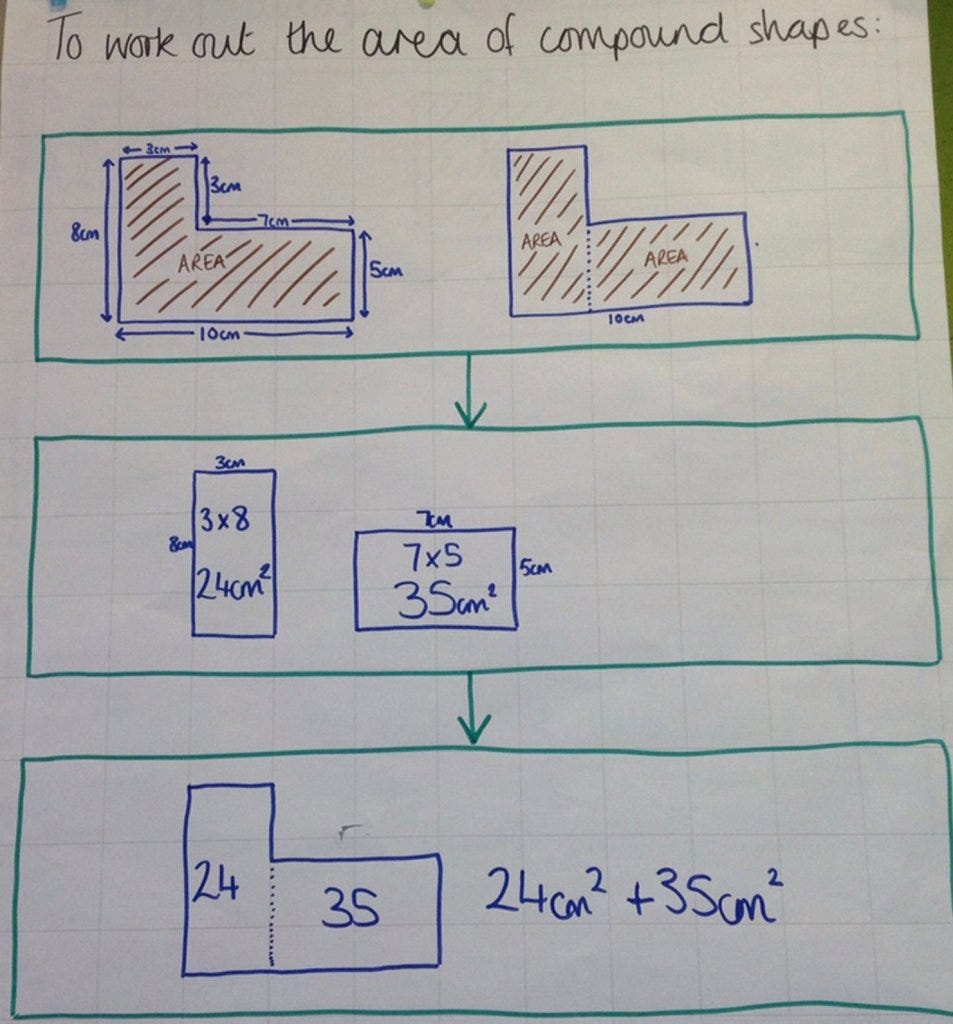 To work out the area of compound shapes:
3cm
3cm
7cm
8cm
AREA
5cm
10cm
AREA
AREA
10cm
3cm
3x8
8cm
24cm²
7cm
7x5
35cm²
5cm
24
35
24cm² +35cm²